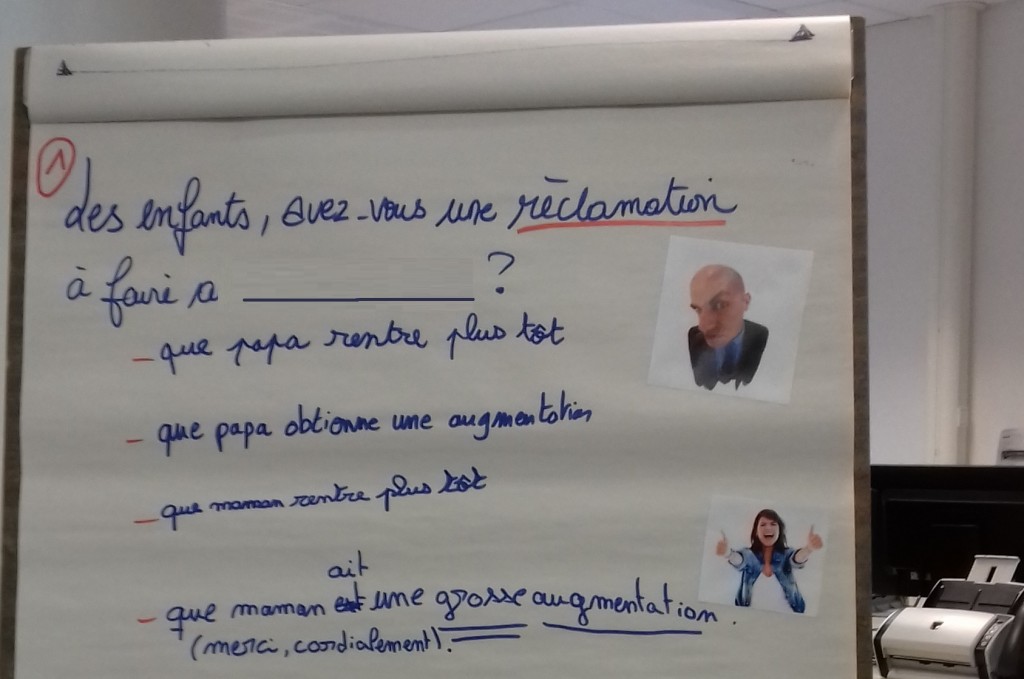 1
des enfants, avez-vous une réclamation
à faire a ?
- que papa rentre plus tôt
- que papa obtienne une augmentation
- que maman rentre plus tôt
ait
- que maman est une grosse augmentation.
(merci, cordialement).